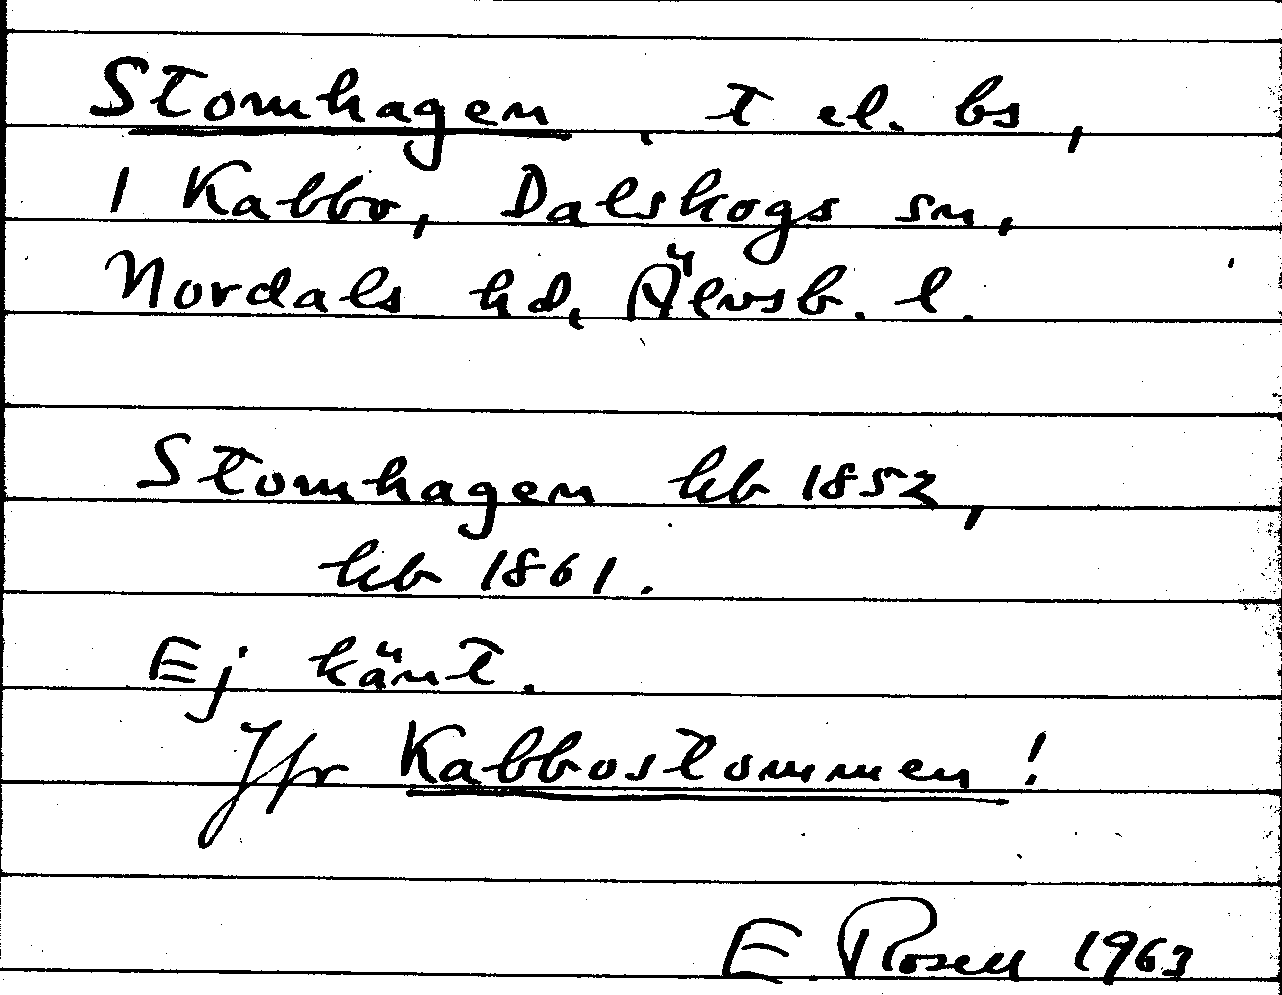 Stomhagen, t el. bs,
i Kabbo, Dalskogs sn,
Nordals hd, Älvsb. l.
Stomhagen hb 1852,
hb 1861.
Ej känt.
Jfr Kabbostommen!
E. Rosell 1963